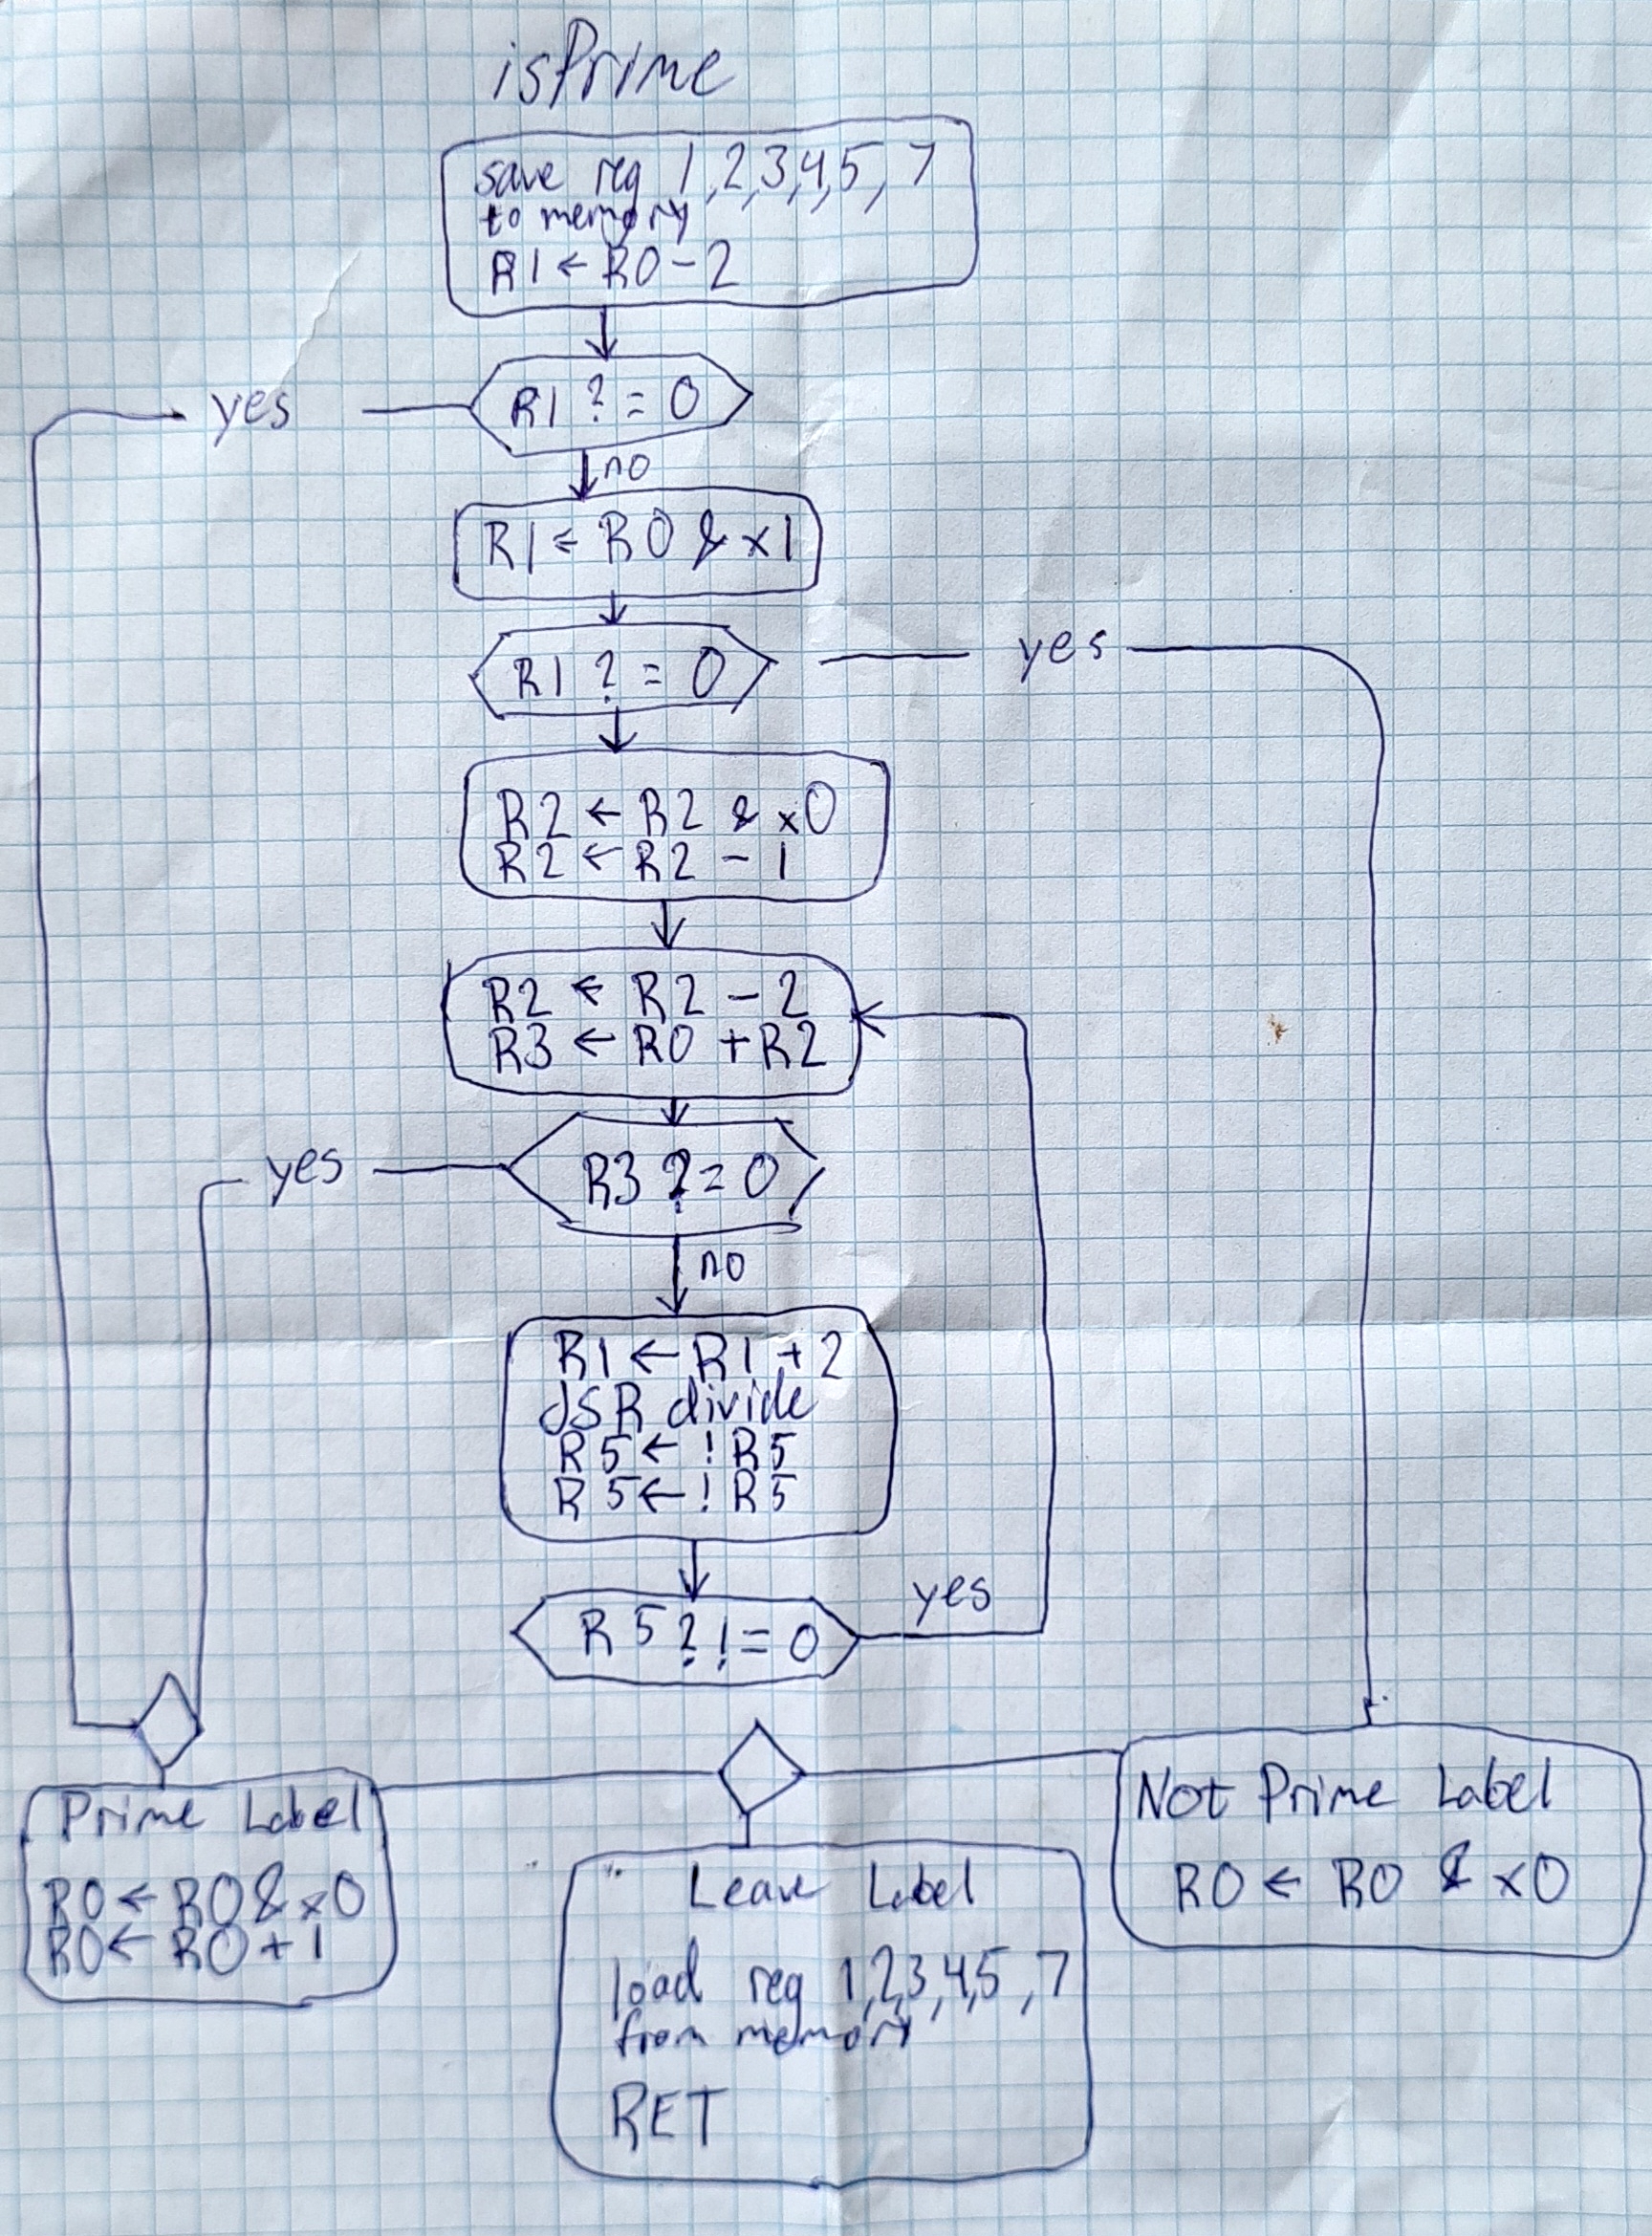 isPrime
save reg 1,2,3,4,5,7
to memory
R1 ← R0 - 2
R1 ?= 0
yes
no
R1 ← R0 & x1
R1 ?= 0
yes
R2 ← R2 & x0
R2 ← R2 - 1
R2 ← R2 - 2
R3 ← R0 + R2
R3 ?= 0
yes
no
R1 ← R1 + 2
JSR divide
R5 ← !R5
R5 ← !R5
R5 ?!= 0
yes
Prime Label
R0 ← R0 & x0
R0 ← R0 + 1
Leave Label
load reg 1,2,3,4,5,7
from memory
RET
Not Prime Label
R0 ← R0 & x0